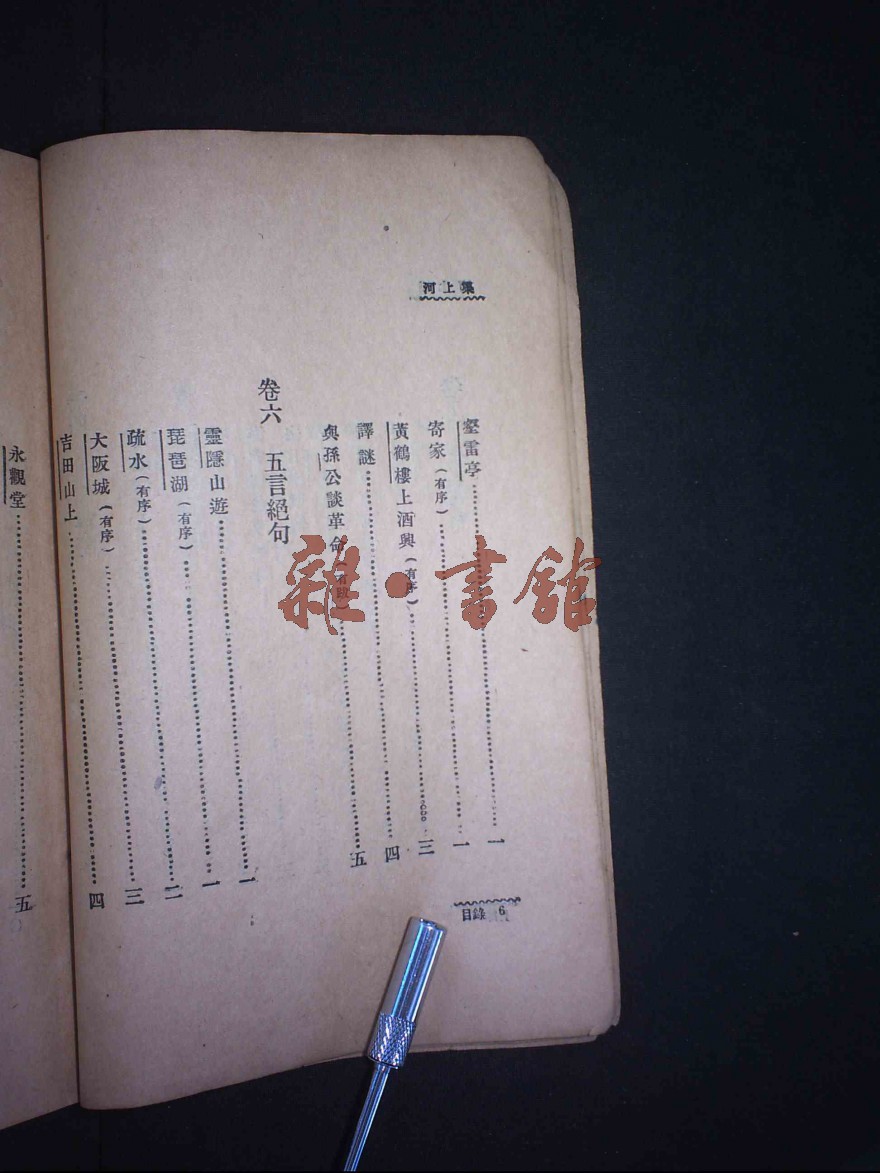 河上集
壑雷亭 一
寄家(有序) 一
黃鶴樓上酒興(有序) 三
譯謎 四
與孫公談革命(有跋) 五
卷六 五言絕句
靈隱山遊 一
琵琶湖(有序) 一
疏水(有序) 二
大阪城(有序) 三
吉田山上 四
永觀堂 五
目錄 6
雜·書館